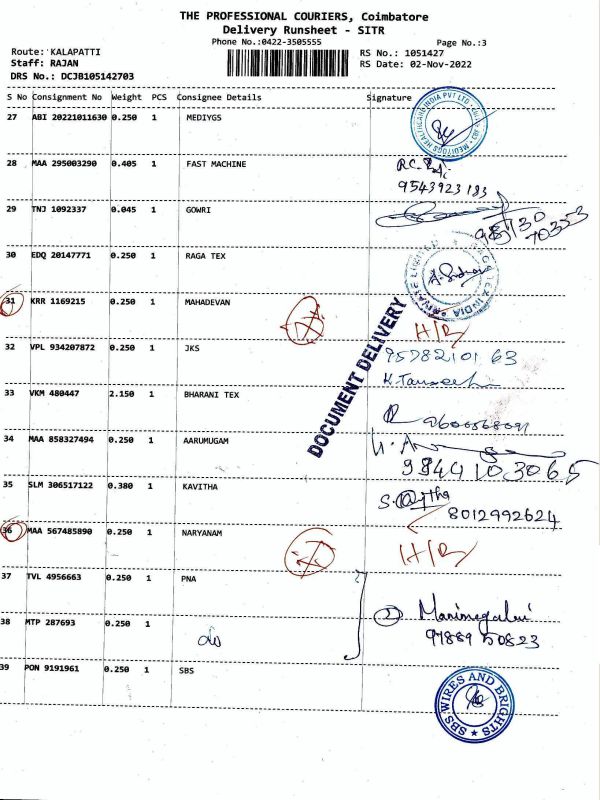 THE PROFESSIONAL COURIERS, Coimbatore
Delivery Runsheet - SITR
Phone No.:0422-3505555 Page No.:3
Route: KALAPATTI RS No.: 1051427
Staff: RAJAN RS Date: 02-Nov-2022
DRS No.: DCJB105142703
S No Consignment No Weight PCS Consignee Details Signature
27 ABI 20221011630 0.250 1 MEDIYGS
28 MAA 295003290 0.405 1 FAST MACHINE
9543923183
29 TNJ 1092337 0.045 1 GOWRI
30 EDQ 20147771 0.250 1 RAGA TEX
31 KRR 1169215 0.250 1 MAHADEVAN
H/R
DOCUMENT DELIVERY
32 VPL 934207872 0.250 1 JKS
9578210163
33 VKM 480447 2.150 1 BHARANI TEX
34 MAA 858327494 0.250 1 AARUMUGAM
9844103065
35 SLM 306517122 0.380 1 KAVITHA
8012992624
36 MAA 567485890 0.250 1 NARYANAM
H/R
37 TVL 4956663 0.250 1 PNA
38 MTP 287693 0.250 1
2
97889 50823
39 PON 9191961 0.250 1 SBS
SBS WIRES AND BRIGHTS